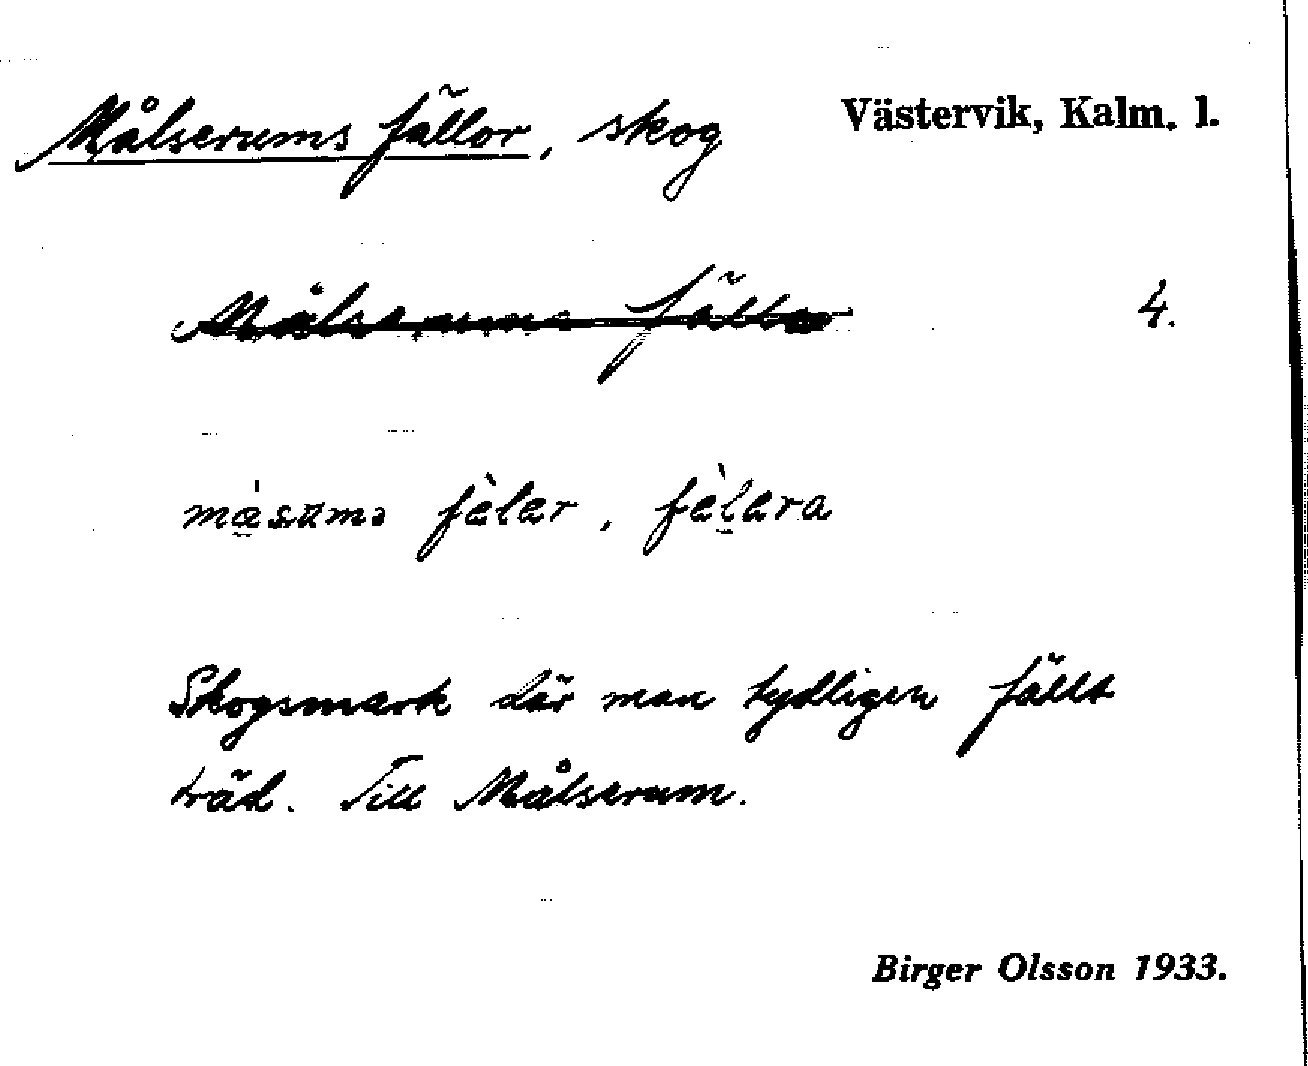 Målserums fällor, skog Västervik, Kalm. l.
Målserums fällor 4.
fèler, fèlera
Skogsmark där man tydligen fällt
träd. Till Målserum.
Birger Olsson 1933.